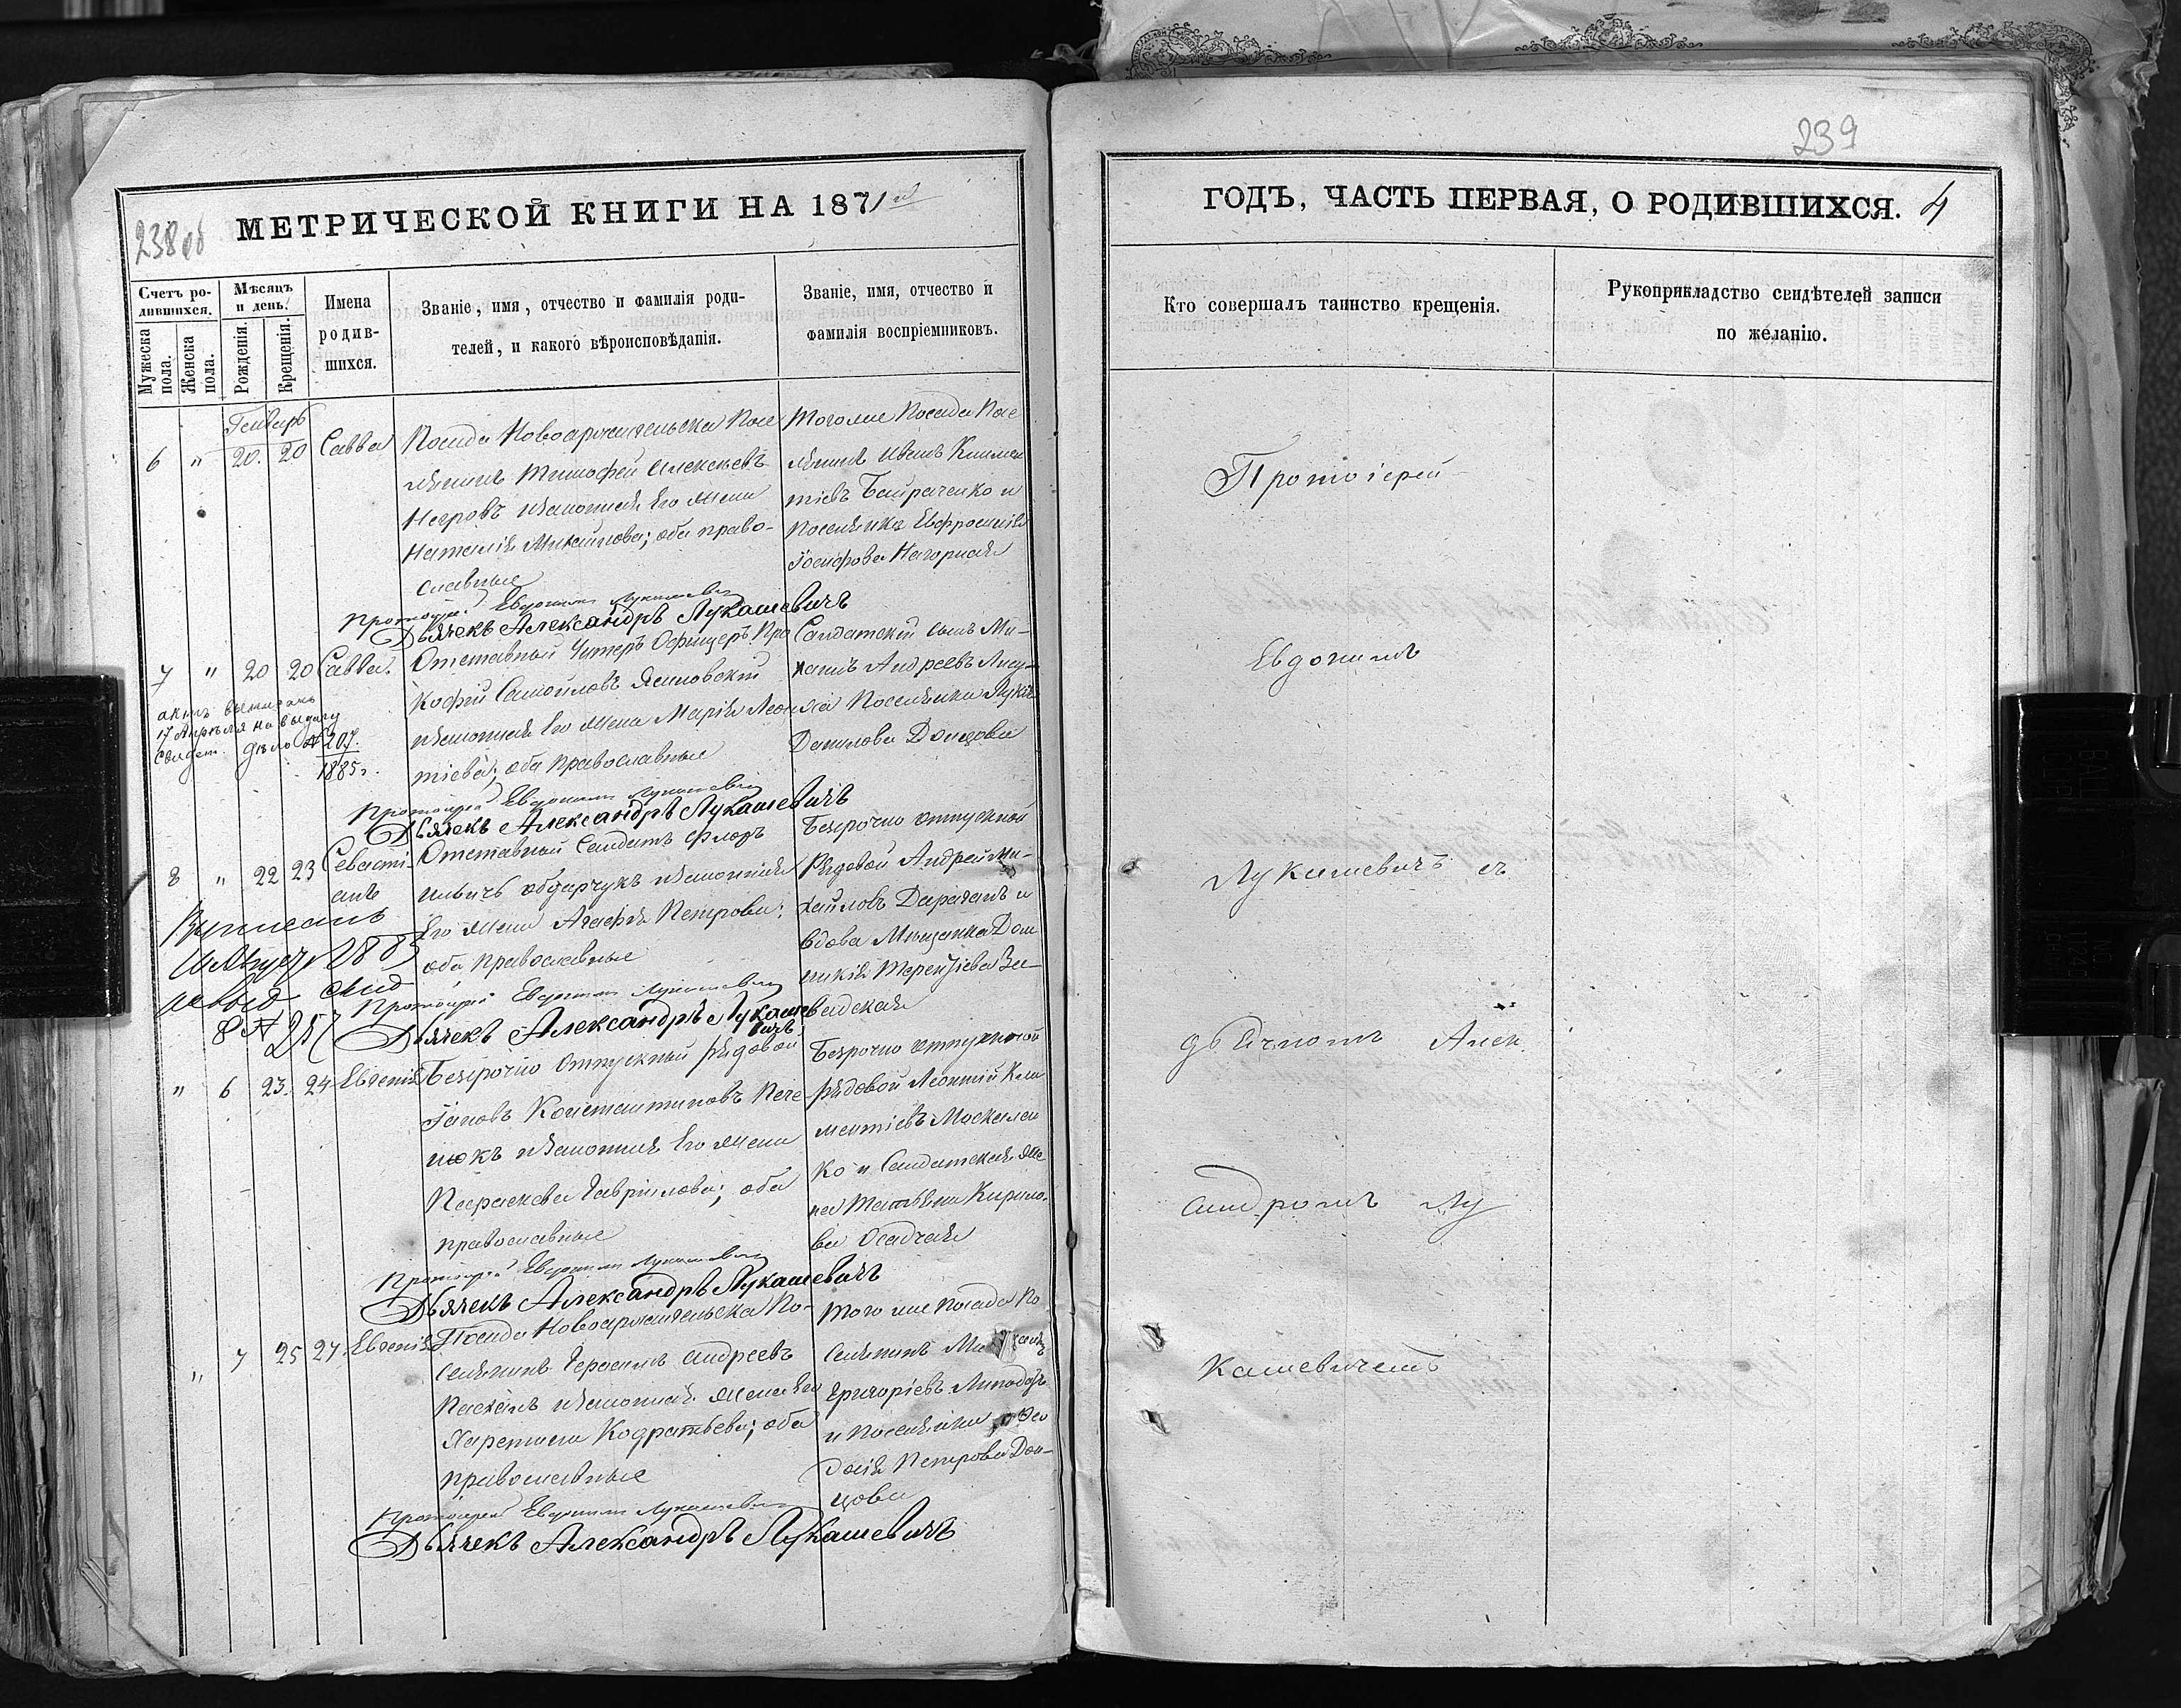 238 об
МЕТРИЧЕСКОЙ КНИГИ НА 1871
Счетъ ро-
дившихся.
Мужеска
пола.
Женска
пола.
Мѣсяцъ
и день.
Рожденія.
Крещенія.
Имена
родив-
шихся.
Званіе, имя, отчество и фамилія роди-
телей, и какого вѣроисповѣданія.
Званіе, имя, отчество и
фамилія воспріемниковъ.
Генварь
6 " 20. 20 Савва
Посада Новоархангельска Посе
лянинъ Тимофей Алексѣевъ
Негровъ и законная его жена
Наталія Михайлова; оба право-
славные
Тогоже Посада Посе
лянинъ Иванъ Климен
тіевъ Байраченко и
Поселянка Евфросинія
Іосифова Нагорная
Протоіерей Евдокимъ Лукашевичъ
Дьячекъ Александръ Лукашевичъ
7 " 20 20 Савва.
Отставный Унтеръ Офицеръ Про
кофій Самойловъ Яхновскій
и законная его жена Марія Леон
тіева; оба православные
Солдатскій сынъ Ми-
хаилъ Андреевъ
и Поселянка Лукія
Данилова Донцова
актъ выписанъ
17 Апрѣля на выдачу
свидет. дѣло № 207.
1885 г.
Протоіерей Евдокимъ Лукашевичъ
Дьячекъ Александръ Лукашевичъ
8 " 22 23 Севасті-
анъ
Отставный Солдатъ Флоръ
Ильичъ и законная
его жена Агафія Петрова;
оба православные
Безрочно отпускной
Рядовой Андрей Ми-
хайловъ и
вдова Мѣщанка Дом
никія Терентіева За-
вадская
1885
свид
№ 257
Протоіерей Евдокимъ Лукашевичъ
Дьячекъ Александръ Лукаше
вичъ
" 6 23. 24 Евгенія
Безрочно отпускный рядовой
Іаковъ Константиновъ Пече
нюкъ и законная его жена
Параскева Гаврілова; оба
православные
Безрочно отпускной
рядовой Леонтій Кли
ментіевъ Москален
ко и Солдатская же
на Татьяна Кирило
ва Осадчая
Протоіерей Евдокимъ Лукашевичъ
Дьячекъ Александръ Лукашевичъ
" 7 25 27 Евгенія
Посада Новоархангельска По-
селянинъ Герасимъ Андреевъ
и законная жена его
Харитина Кодратьева; оба
православные
того же Посада По
селянинъ Михаилъ
Григоріевъ
и Поселянка Ѳео
досія Петрова Дон-
цова
Протоіерей Евдокимъ Лукашевичъ
Дьячекъ Александръ Лукашевичъ
239
ГОДЪ, ЧАСТЬ ПЕРВАЯ, О РОДИВШИХСЯ. 4
Кто совершалъ таинство крещенія.
Рукоприкладство свидѣтелей записи
по желанію.
Протоіерей
Евдокимъ
Лукашевичъ съ
дьячкомъ Алек
сандромъ Лу
кашевичемъ